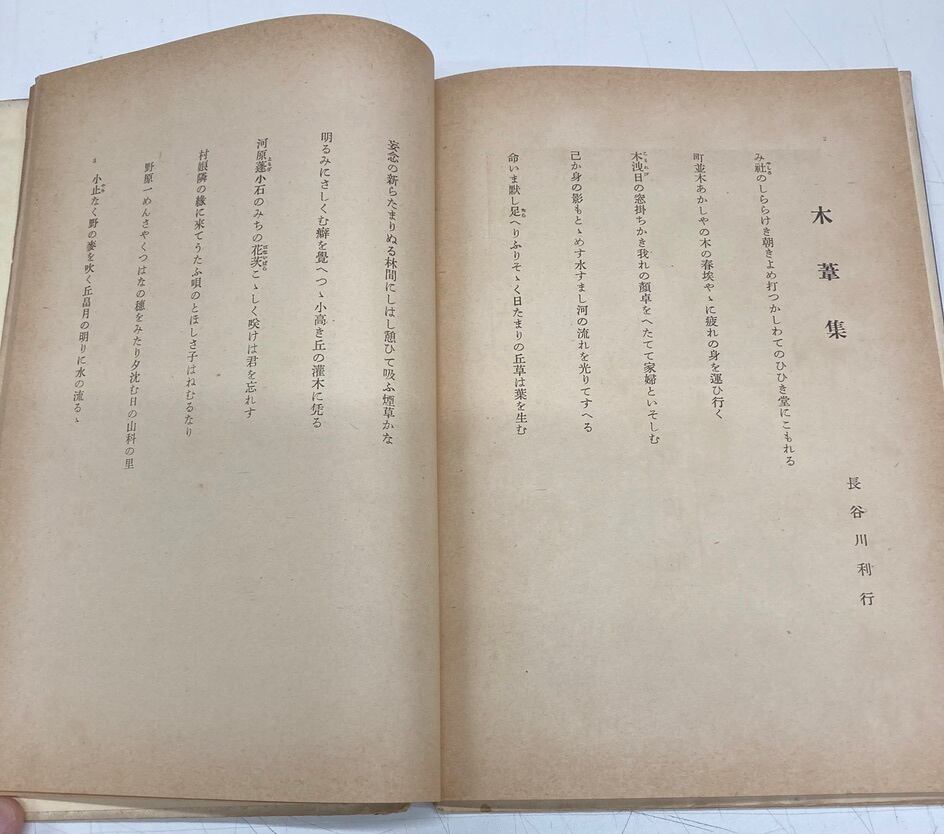 木葦集
長谷川利行
み社のしららけき朝きよめ打つかしわてのひひき堂にこもれる
町並木あかしやの木の春埃やゝに疲れの身を運ひ行く
木洩日の窓掛ちかき我れの顏卓をへたてて家婦といそしむ
己か身の影もとゝめす水すまし河の流れを光りてすへる
命いま默し足へりふりそゝく日たまりの丘草は葉を生む
妄念の新らたまりぬる林間にしはし憩ひて吸ふ煙草かな
明るみにさしくむ癖を覺へつゝ小高き丘の灌木に凭る
河原蓬小石のみちの花茨こゝしく咲けは君を忘れす
村娘隣の緣に來てうたふ唄のとほしさ子はねむるなり
野原一めんさやくつはなの穗をみたり夕沈む日の山科の里
小止なく野の麥を吹く丘畠月の明りに水の流るゝ